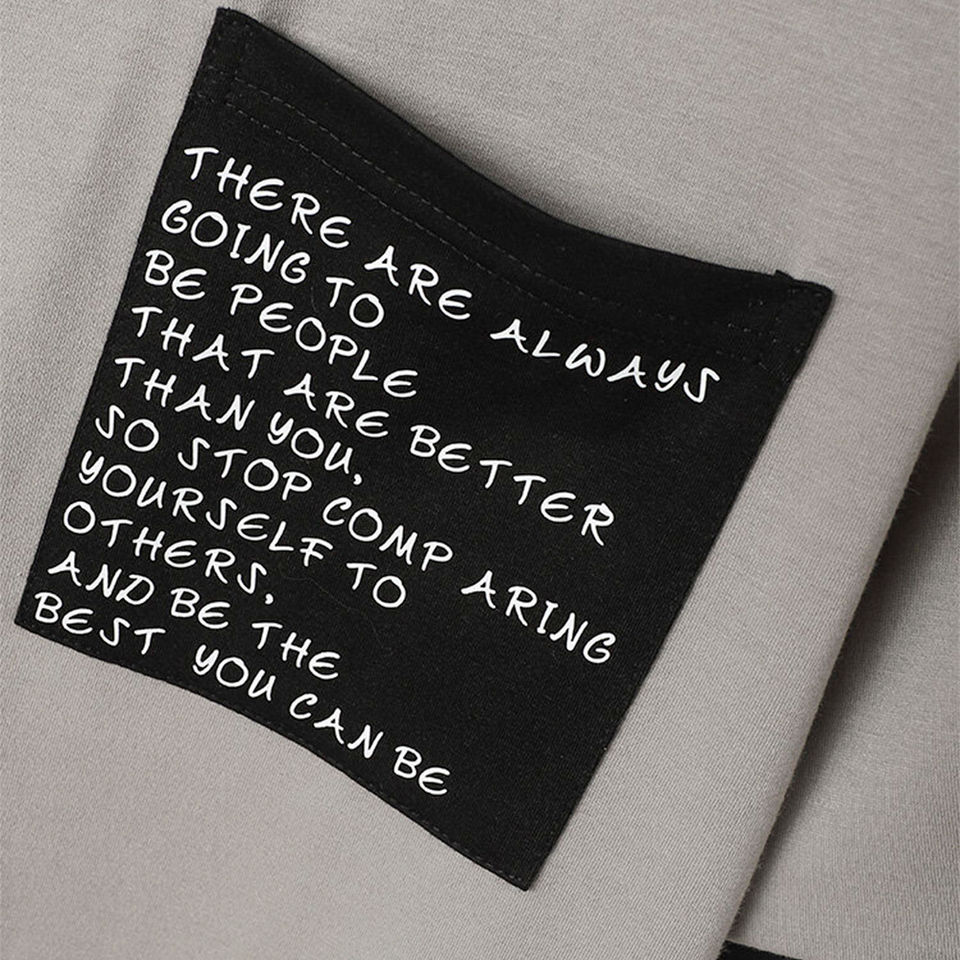 THERE ARE ALWAYS
GOING TO
BE PEOPLE
THAT ARE BETTER
THAN YOU,
SO STOP COMP ARING
YOURSELF TO
OTHERS,
AND BE THE
BEST YOU CAN BE